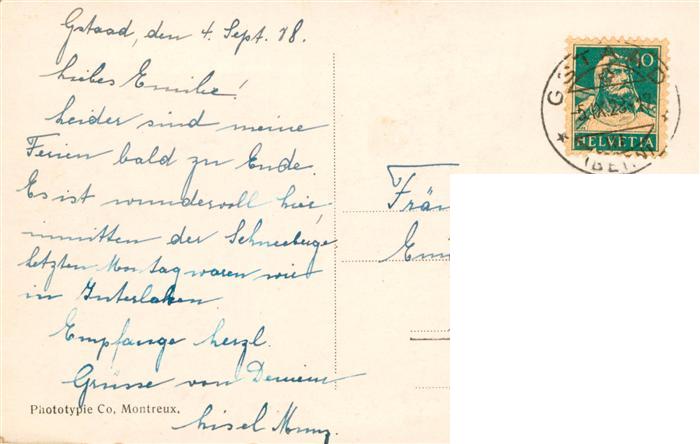 Gstaad, den 4. Sept. 28.
Liebes Emilie!
Leider sind meine
Ferien bald zu Ende.
Es ist wundervoll hier
inmitten der Schneeberge
Letzten Montag waren wir
in Interlaken.
Empfange herzl.
Grüsse von Deinem
Lisel
Phototypie Co, Montreux.
10
HELVETIA
GSTAAD
(BERN)
Frä
Emi